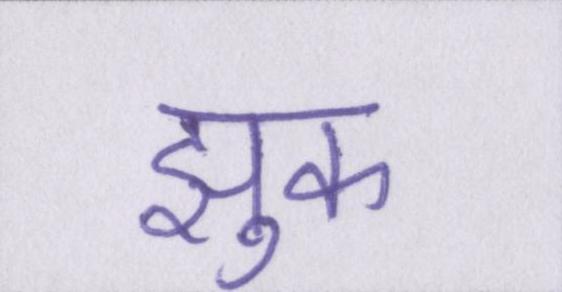 झुक